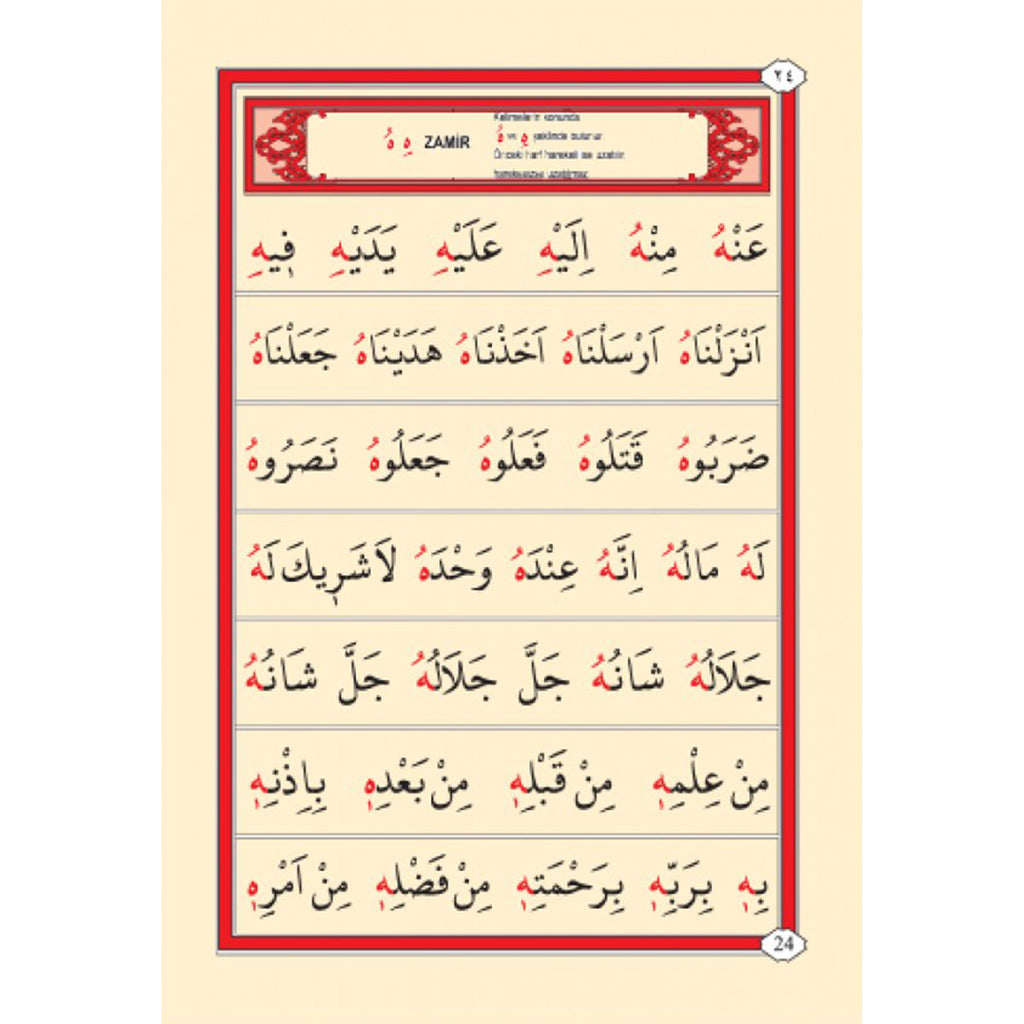 ٢٤
هُ هِ ZAMİR
Kelimelerin sonunda
هُ ve هِ şeklinde bulunur.
Önceki harf harekeli ise uzatılır,
harekesizse uzatılmaz.
عَنْهُ مِنْهُ اِلَيْهِ عَلَيْهِ يَدَيْهِ فٖيهِ
اَنْزَلْنَاهُ اَرْسَلْنَاهُ اَخَذْنَاهُ هَدَيْنَاهُ جَعَلْنَاهُ
ضَرَبُوهُ قَتَلُوهُ فَعَلُوهُ جَعَلُوهُ نَصَرُوهُ
لَهُ مَالُهُ اِنَّهُ عِنْدَهُ وَحْدَهُ لَا شَرٖيكَ لَهُ
جَلَالُهُ شَانُهُ جَلَّ جَلَالُهُ جَلَّ شَانُهُ
مِنْ عِلْمِهٖ مِنْ قَبْلِهٖ مِنْ بَعْدِهٖ بِاِذْنِهٖ
بِهٖ بِرَبِّهٖ بِرَحْمَتِهٖ مِنْ فَضْلِهٖ مِنْ اَمْرِهٖ
24